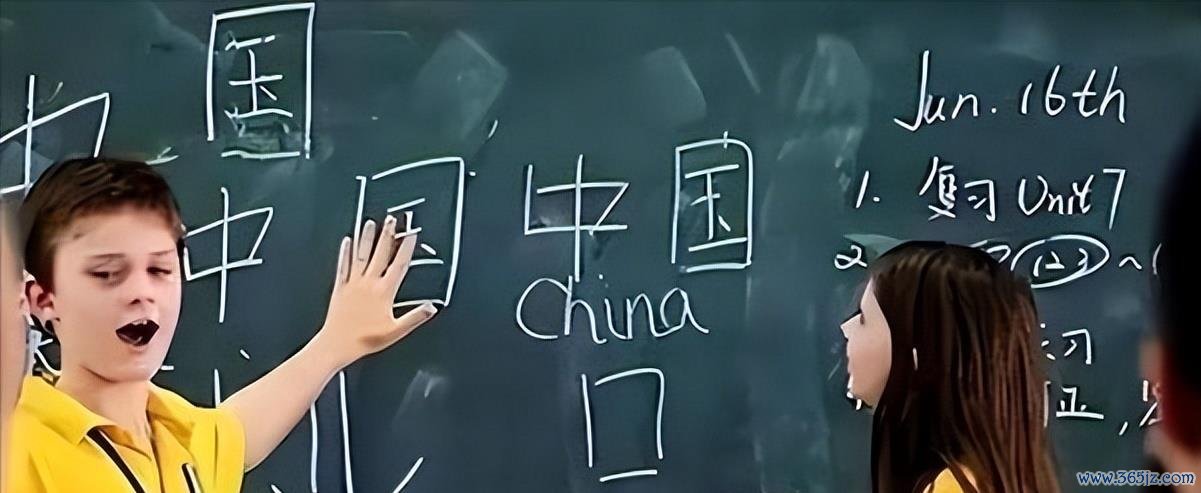 国
中
中国
中国
China
Jun. 16th
1. 复习 Unit 7
2. 123 ~
习
正,
www.365jz.com